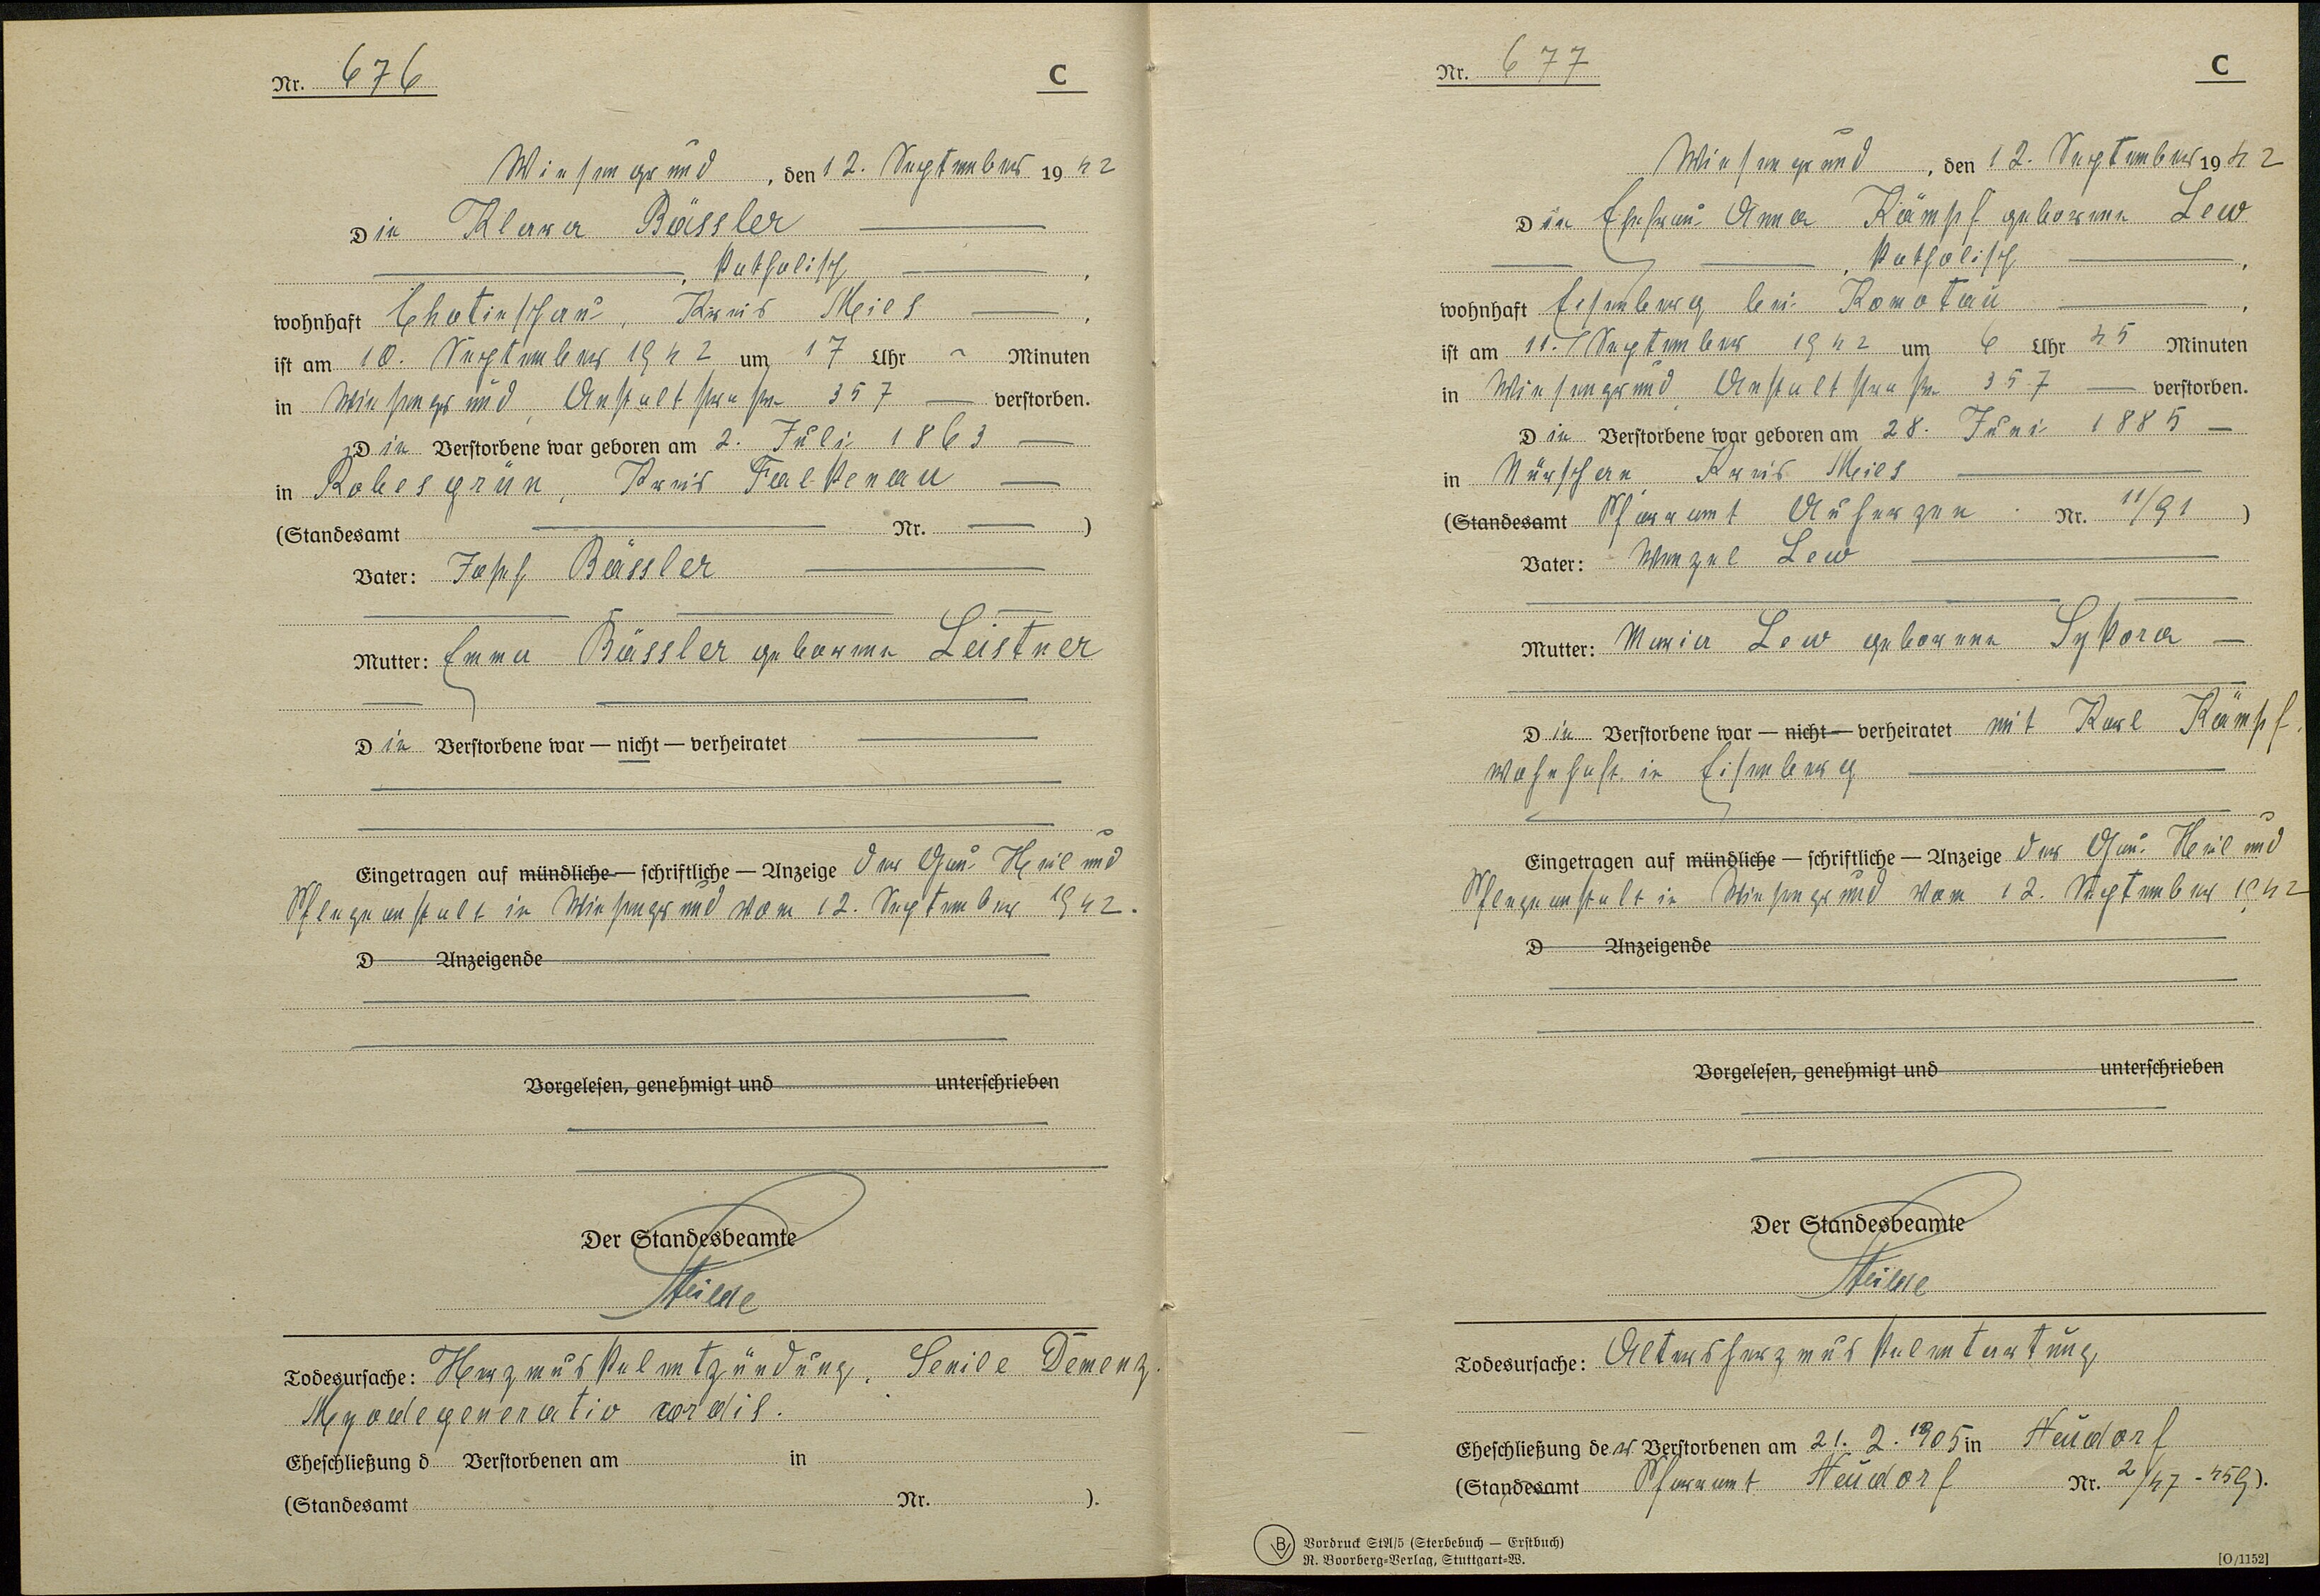 Nr. 676
C
Wiesengrund, den 12. September 1942
Die Klara Bässler
, katholisch,
wohnhaft Chotieschau, Kreis Mies,
ist am 10. September 1942 um 17 Uhr - Minuten
in Wiesengrund, Anstaltstrasse 357 verstorben.
Die Verstorbene war geboren am 2. Juli 1863
in Robesgrün, Kreis Falkenau
(Standesamt Nr. )
Vater: Josef Bässler
Mutter: Emma Bässler geborene Leistner
Die Verstorbene war — nicht — verheiratet
Eingetragen auf mündliche — schriftliche — Anzeige der Gau Heil und
Pflegeanstalt in Wiesengrund vom 12. September 1942.
D Anzeigende
Vorgelesen, genehmigt und unterschrieben
Der Standesbeamte
Todesursache: Herzmuskelentzündung, Senile Demenz.
Myodegeneratio cordis.
Eheschließung d Verstorbenen am in
(Standesamt Nr. ).
Nr. 677
C
Wiesengrund, den 12. September 1942
Die Ehefrau Anna Kämpf geborene Lew
, katholisch,
wohnhaft Eisenberg bei Komotau,
ist am 11. September 1942 um 6 Uhr 45 Minuten
in Wiesengrund, Anstaltstrasse 357 verstorben.
Die Verstorbene war geboren am 28. Juni 1885
in Nürschan Kreis Mies
(Standesamt Pfarramt Auherzen Nr. 11/91)
Vater: Wenzel Lew
Mutter: Maria Lew geborene Sykora
Die Verstorbene war — nicht — verheiratet mit Karl Kämpf,
wohnhaft in Eisenberg
Eingetragen auf mündliche — schriftliche — Anzeige der Gau Heil und
Pflegeanstalt in Wiesengrund vom 12. September 1942
D Anzeigende
Vorgelesen, genehmigt und unterschrieben
Der Standesbeamte
Todesursache: Altersherzmuskelentartung
Eheschließung der Verstorbenen am 21. 2. 1905 in Neudorf
(Standesamt Pfarramt Neudorf Nr. 2/47-459).
B Vordruck StA/5 (Sterbebuch — Erstbuch)
R. Boorberg-Verlag, Stuttgart-W.
[O/1152]